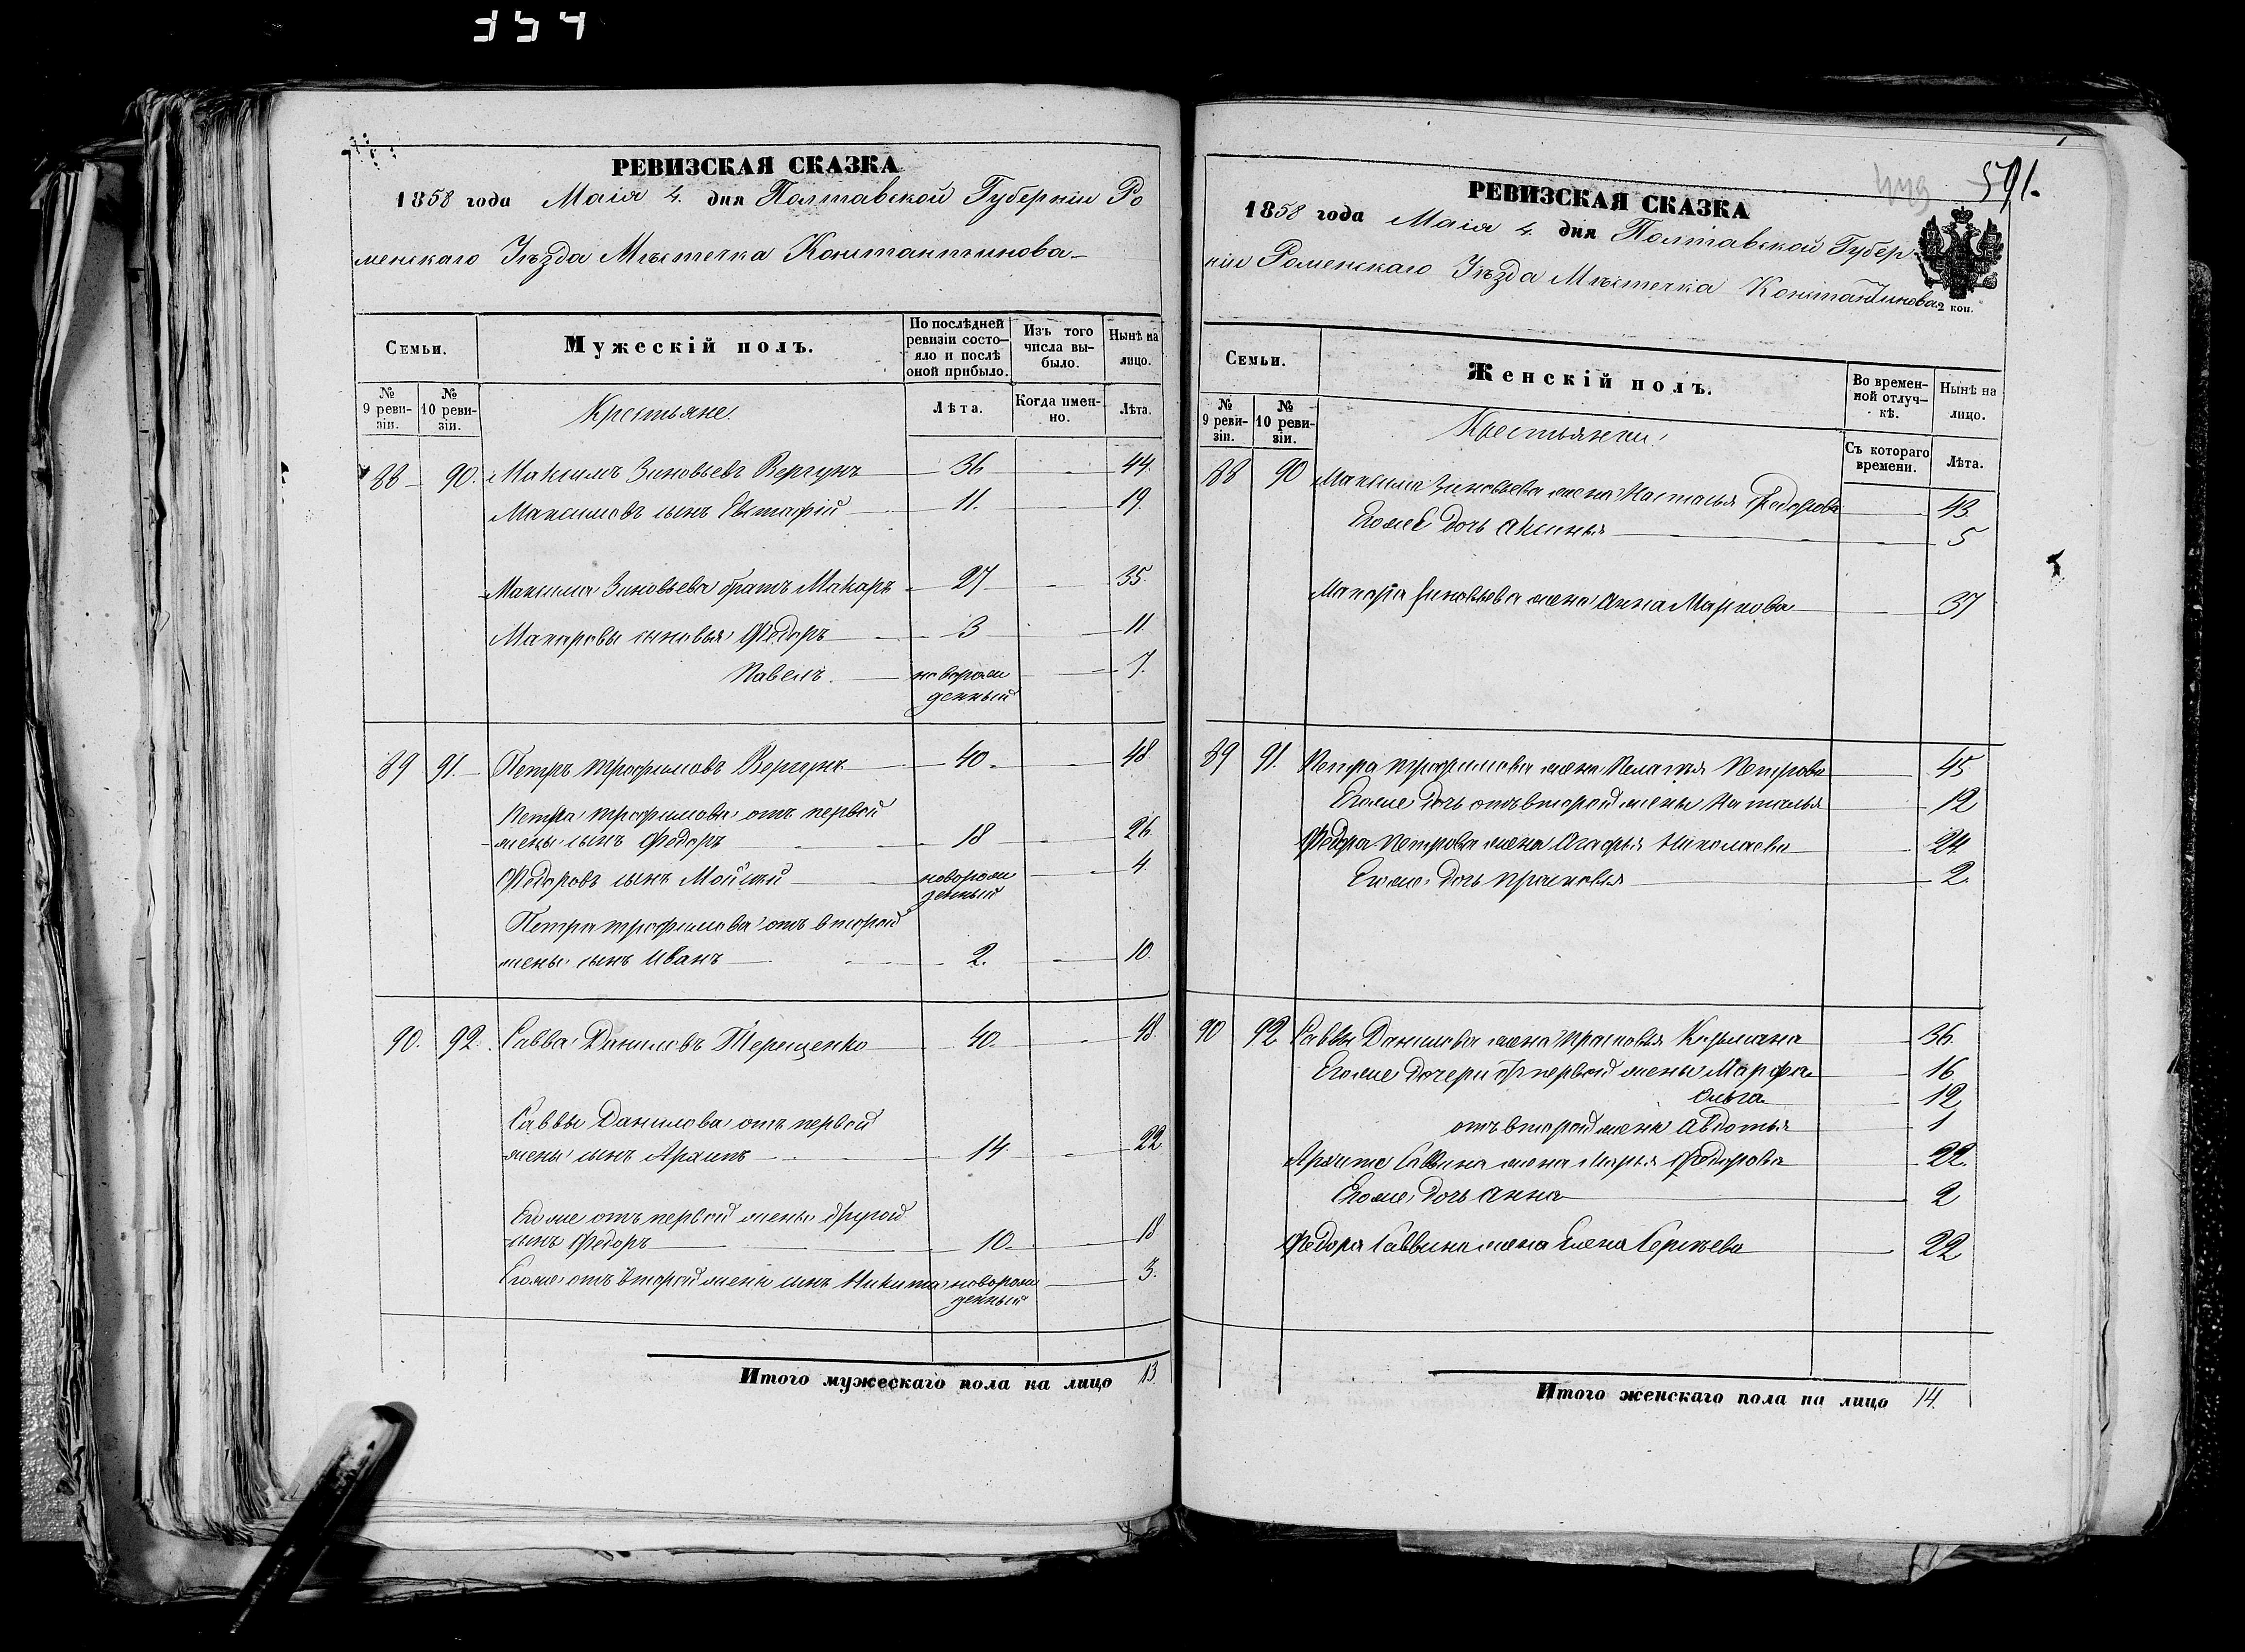 354
РЕВИЗСКАЯ СКАЗКА
1858 года Маія 4. дня Полтавской Губерніи Ро
менскаго Уѣзда Мѣстечка Константинова
Семьи.
Мужескій полъ.
По послѣдней
ревизіи состо-
яло и послѣ
оной прибыло.
Изъ того
числа вы-
было.
Нынѣ на
лицо.
№
9 реви-
зіи.
№
10 реви-
зіи.
Крестьяне.
Лѣта.
Когда имен-
но.
Лѣта.
88 90. Максимъ Зиновьевъ Вергунъ 36 44.
Максимовъ сынъ Евстафій 11. 19.
Максима Зиновьева братъ Макаръ 27 35.
Макаровы сыновья Федоръ 3 11
Павелъ. новорож
денный 7.
89 91. Петръ Трофимовъ Вергунъ 40 48.
Петра Трофимова отъ первой
жены сынъ Федоръ 18 26.
Федоровъ сынъ Мойсей новорож
денный 4.
Петра Трофимова отъ второй
жены сынъ Иванъ 2. 10.
90. 92. Савва Даниловъ Терещенко 40. 48.
Саввы Данилова отъ первой
жены сынъ Архипъ 14. 22
Его же отъ первой жены другой
сынъ Федоръ 10. 18
Его же отъ второй жены сынъ Никита новорож
денный 3.
Итого мужескаго пола на лицо 13.
591.
РЕВИЗСКАЯ СКАЗКА
1858 года Маія 4. дня Полтавской Губер
ніи Роменскаго Уѣзда Мѣстечка Константинова
2 коп.
Семьи.
Женскій полъ.
Во времен-
ной отлуч-
кѣ.
Нынѣ на
лицо.
№
9 реви-
зіи.
№
10 реви-
зіи.
Крестьянки.
Съ котораго
времени.
Лѣта.
88 90 Максима Зиновьева жена Настасья Федорова 43.
Его же дочь Аксинья 5
Макара Зиновьева жена Анна Маркова 37
89 91. Петра Трофимова жена Пелагея Петрова 45
Его же дочь отъ второй жены Наталья 12
Федора Петрова жена Агафья Николаева 24
Его же дочь Прасковья 2.
90 92 Саввы Данилова жена Прасковья Кузьмина 36.
Его же дочери отъ первой жены Марфа 16
Ольга 12
отъ второй жены Авдотья 1
Архипа Саввина жена Марья Федорова 22.
Его же дочь Анна 2
Федора Саввина жена Елена Сергѣева 22
Итого женскаго пола на лицо 14.